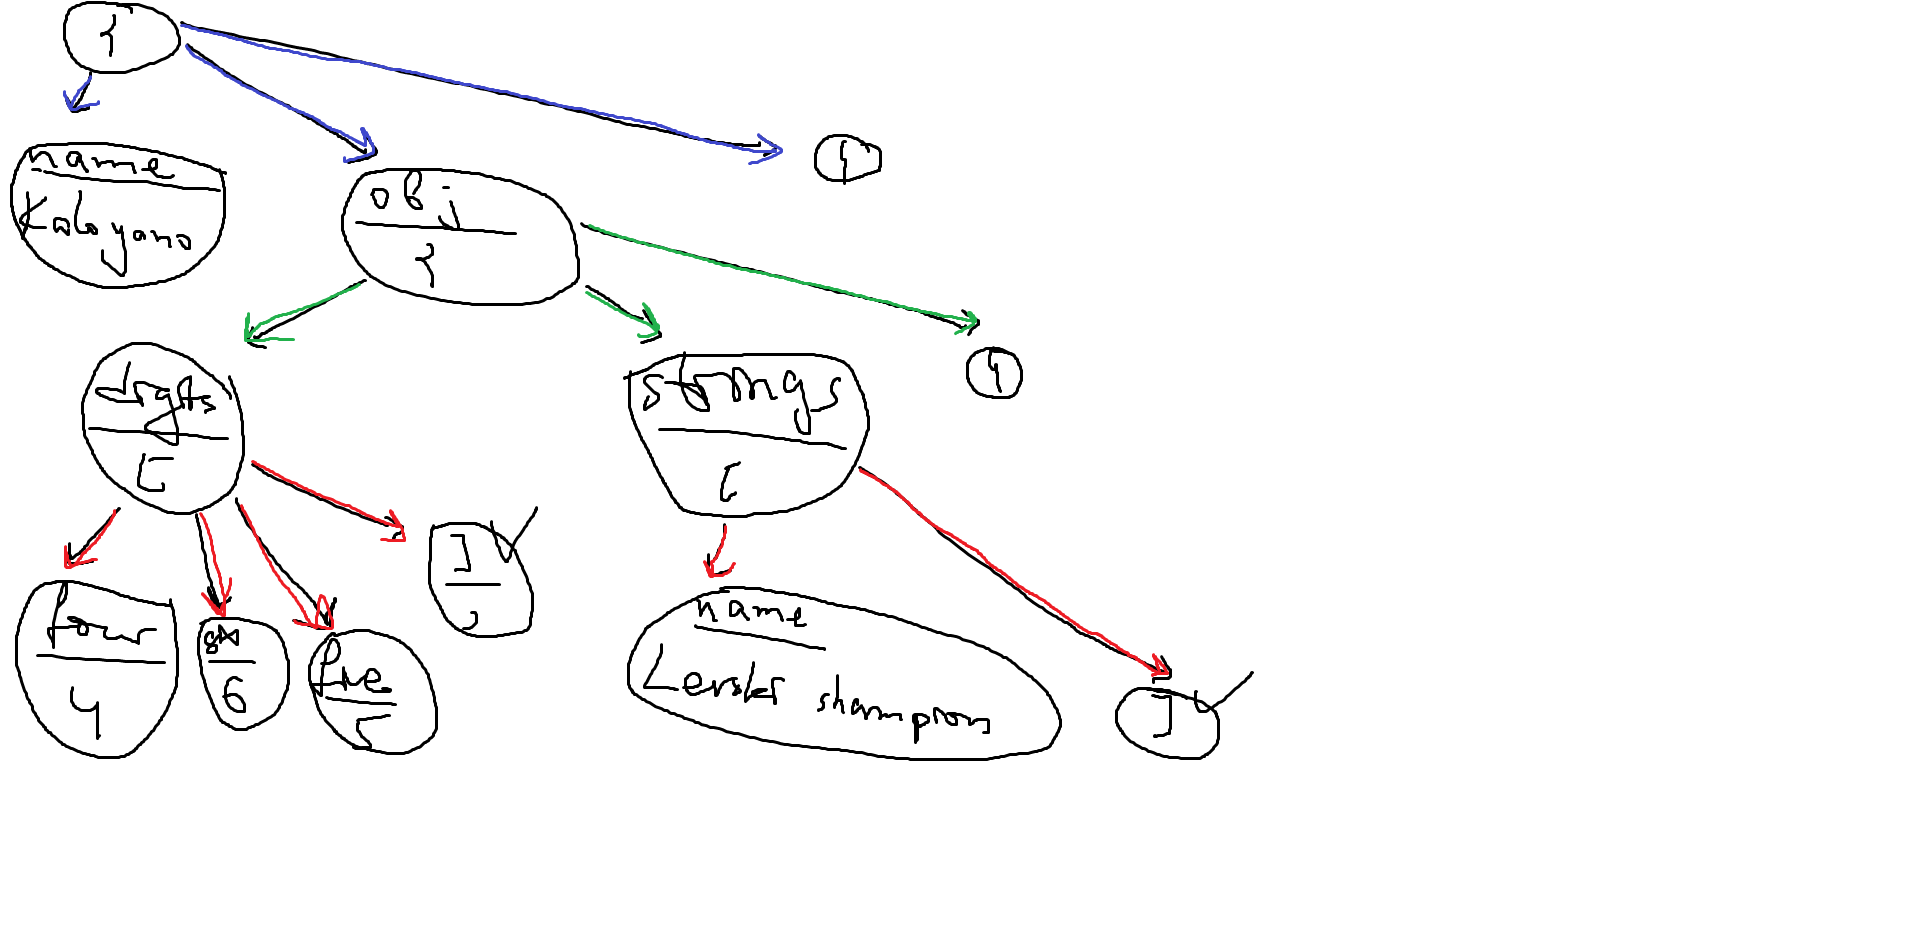 {
name
Kaloyano
}
obj
{
}
digits
[
strings
[
]
,
four
4
six
6
five
5
name
Levski shampion
]